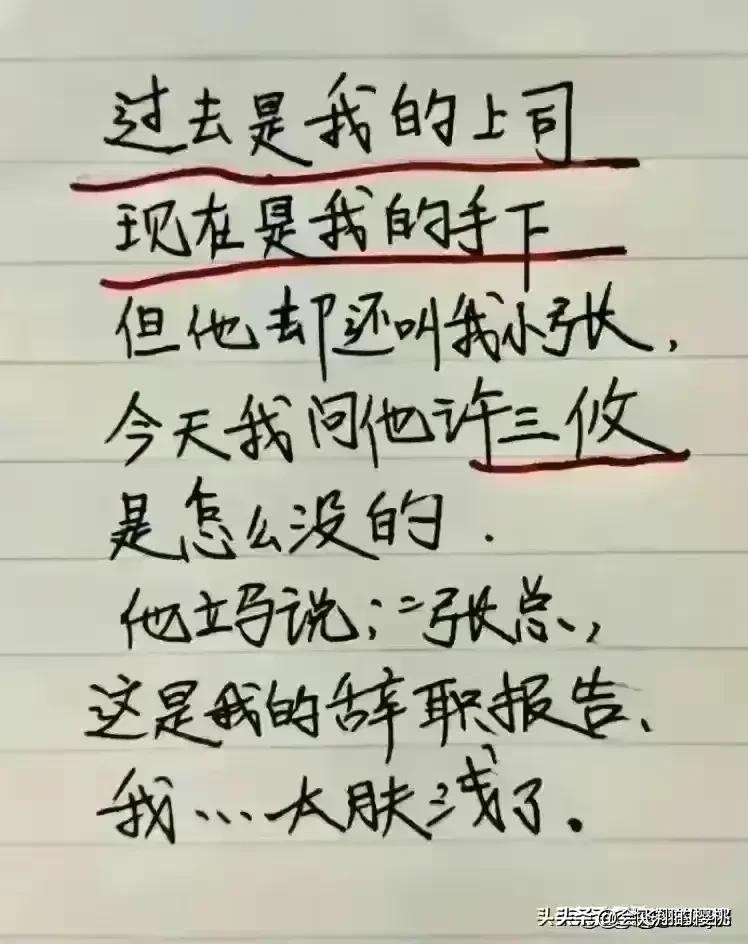 过去是我的上司
现在是我的手下
但他却还叫我小张,
今天我问他许三攸
是怎么没的.
他立马说:"张总,
这是我的辞职报告、
我...太肤浅了。